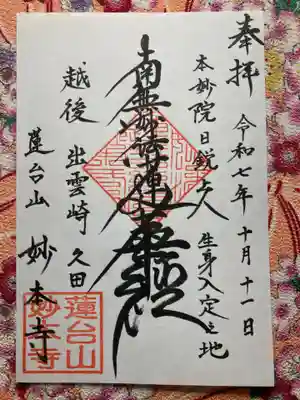 奉拝
令和七年十月十一日
本妙院日鋭上人
生身入定之地
南無妙法蓮華経
越後出雲崎久田
蓮台山妙本寺
蓮台山
妙本寺